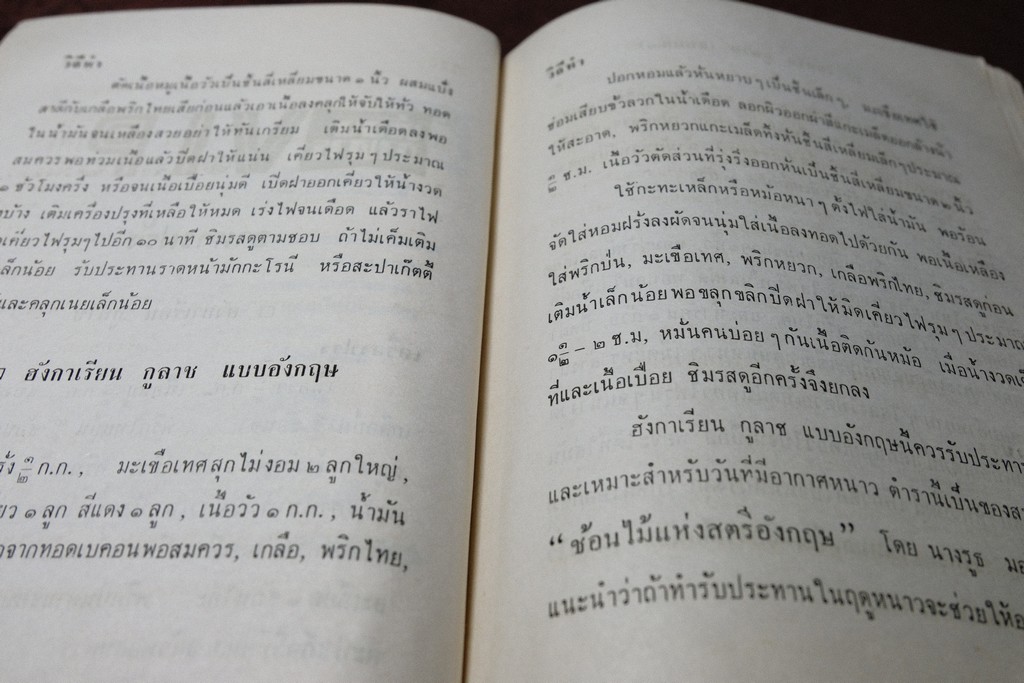 วิธีทำ
ตัดเนื้อหมูเนื้อวัวเป็นชิ้นสี่เหลี่ยมขนาด ๑ นิ้ว ผสมแป้ง
สาลีกับเกลือพริกไทยเสียก่อนแล้วเอาเนื้อลงคลุกให้จับให้ทั่ว ทอด
ในน้ำมันจนเหลืองสวยอย่าให้ทันเกรียม เติมน้ำเดือดลงพอ
สมควรพอท่วมเนื้อแล้วปิดฝาให้แน่น เคี่ยวไฟรุม ๆ ประมาณ
๑ ชั่วโมงครึ่ง หรือจนเนื้อเปื่อยนุ่มดี เปิดฝาออกเคี่ยวให้น้ำงวด
ลงบ้าง เติมเครื่องปรุงที่เหลือให้หมด เร่งไฟจนเดือด แล้วราไฟ
เคี่ยวไฟรุมๆไปอีก ๑๐ นาที ชิมรสดูตามชอบ ถ้าไม่เค็มเติม
เล็กน้อย รับประทานราดหน้ามักกะโรนี หรือสะปาเก๊ตตี้
และคลุกเนยเล็กน้อย
ฮังกาเรียน กูลาช แบบอังกฤษ
๑/๒ ก.ก., มะเขือเทศสุกไม่งอม ๒ ลูกใหญ่,
๑ ลูก สีแดง ๑ ลูก, เนื้อวัว ๑ ก.ก., น้ำมัน
จากทอดเบคอนพอสมควร, เกลือ, พริกไทย,
วิธีทำ
ปอกหอมแล้วหั่นหยาบ ๆ เป็นชิ้นเล็ก ๆ, มะเขือเทศใช้
ซ่อมเสียบขั้วลวกในน้ำเดือด ลอกผิวออกผ่าสี่แกะเมล็ดออกล้างน้ำ
ให้สะอาด, พริกหยวกแกะเมล็ดทิ้งหั่นชิ้นสี่เหลี่ยมเล็กๆประมาณ
๑/๒ ซ.ม. เนื้อวัวตัดส่วนที่รุ่งริ่งออกหั่นเป็นชิ้นสี่เหลี่ยมขนาด ๒ นิ้ว
ใช้กะทะเหล็กหรือหม้อหนา ๆ ตั้งไฟใส่น้ำมัน พอร้อน
จัดใส่หอมฝรั่งลงผัดจนนุ่มใส่เนื้อลงทอดไปด้วยกัน พอเนื้อเหลือง
ใส่พริกป่น, มะเขือเทศ, พริกหยวก, เกลือพริกไทย, ชิมรสดูก่อน
เติมน้ำเล็กน้อยพอขลุกขลิกปิดฝาให้มิดเคี่ยวไฟรุม ๆ ประมาณ
๑ ๑/๒ – ๒ ช.ม, หมั่นคนบ่อย ๆ กันเนื้อติดก้นหม้อ เมื่อน้ำงวด
ที่และเนื้อเปื่อย ชิมรสดูอีกครั้งจึงยกลง
ฮังกาเรียน กูลาช แบบอังกฤษนี้ควรรับประทาน
และเหมาะสำหรับวันที่มีอากาศหนาว ตำรานี้เป็นของ
“ช้อนไม้แห่งสตรีอังกฤษ” โดย นางรูธ
แนะนำว่าถ้าทำรับประทานในฤดูหนาวจะช่วยให้